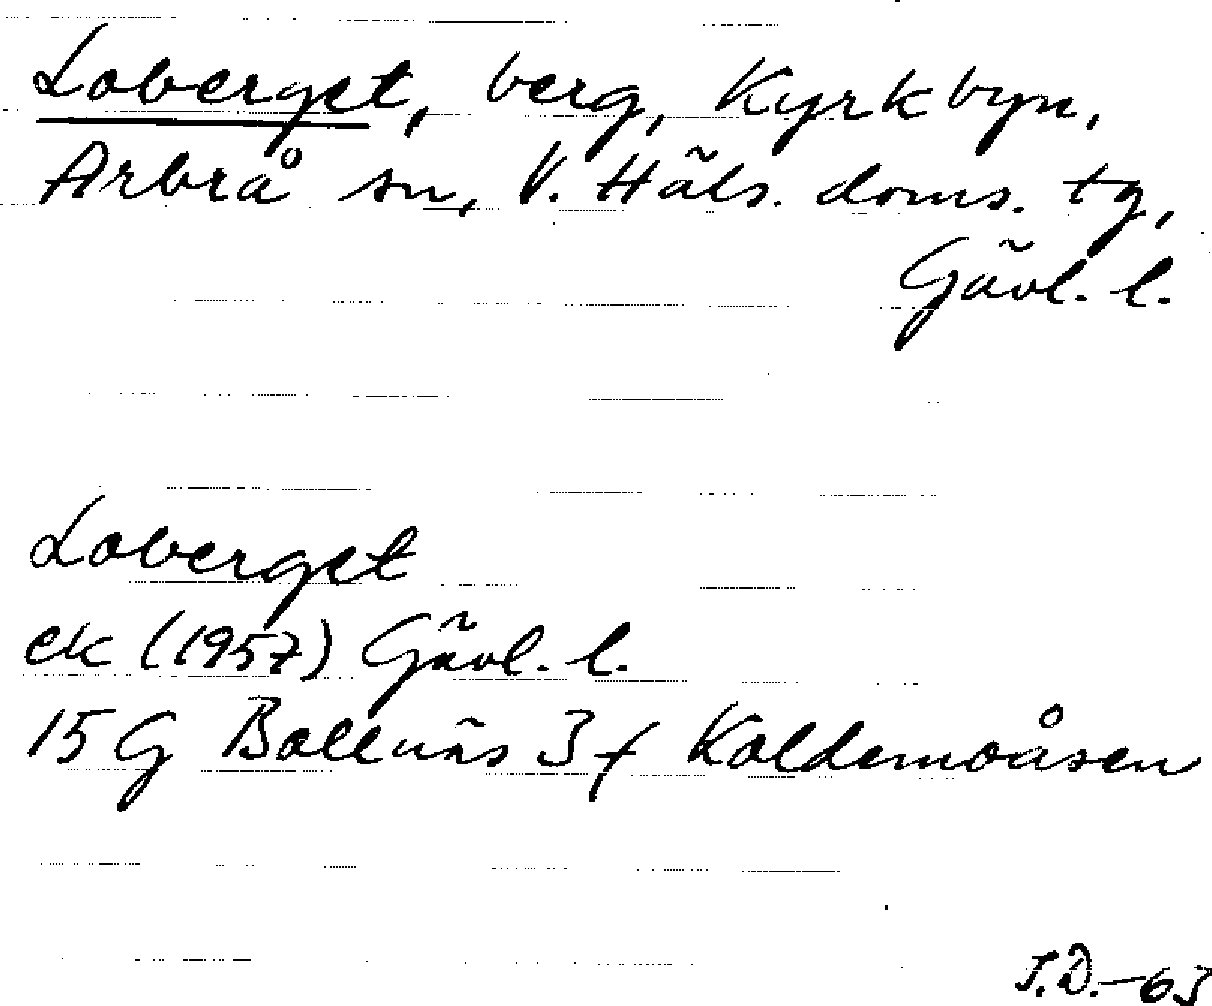 Loberget, berg, Kyrkbyn,
Arbrå sn, V. Häls. doms. tg,
Gävl. l.
Loberget
ek (1957) Gävl. l.
15 G Bollnäs 3 f Koldemoåsen
J.D.-63